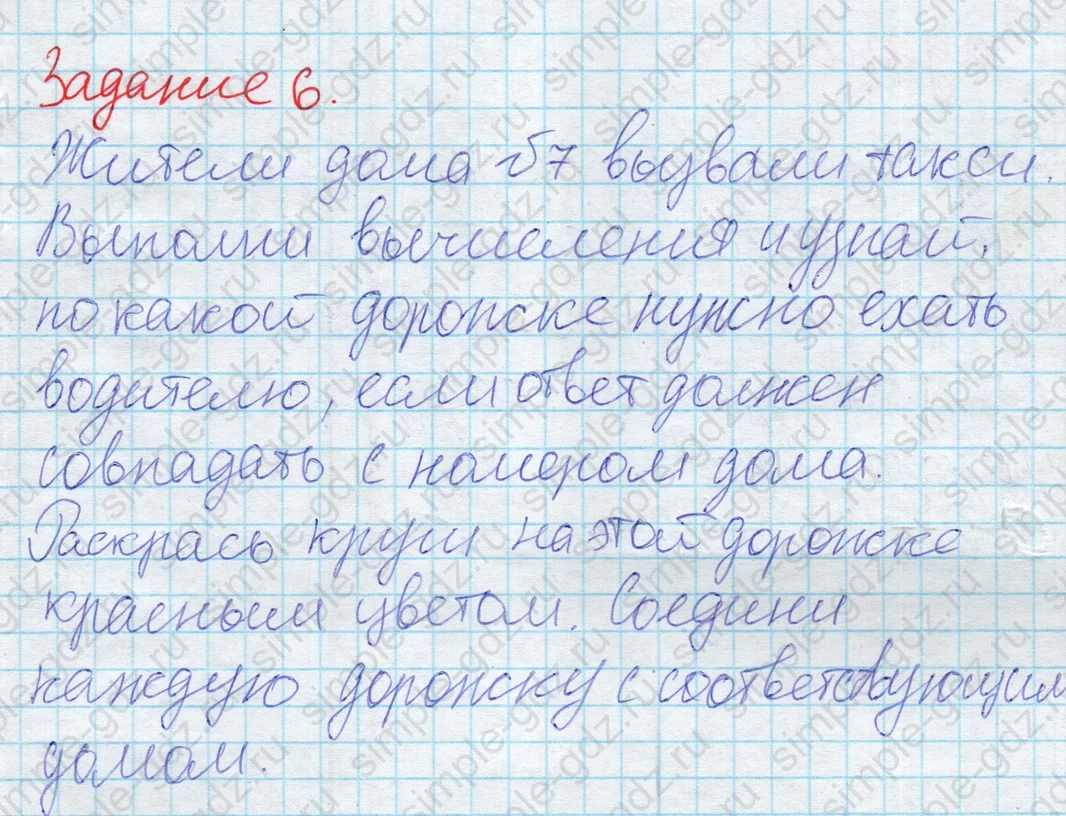 Задание 6.
Жители дома №7 вызвали такси.
Выполни вычисления и узнай,
по какой дорожке нужно ехать
водителю, если ответ должен
совпадать с номером дома.
Раскрась круги на этой дорожке
красным цветом. Соедини
каждую дорожку с соответствующим
домом.